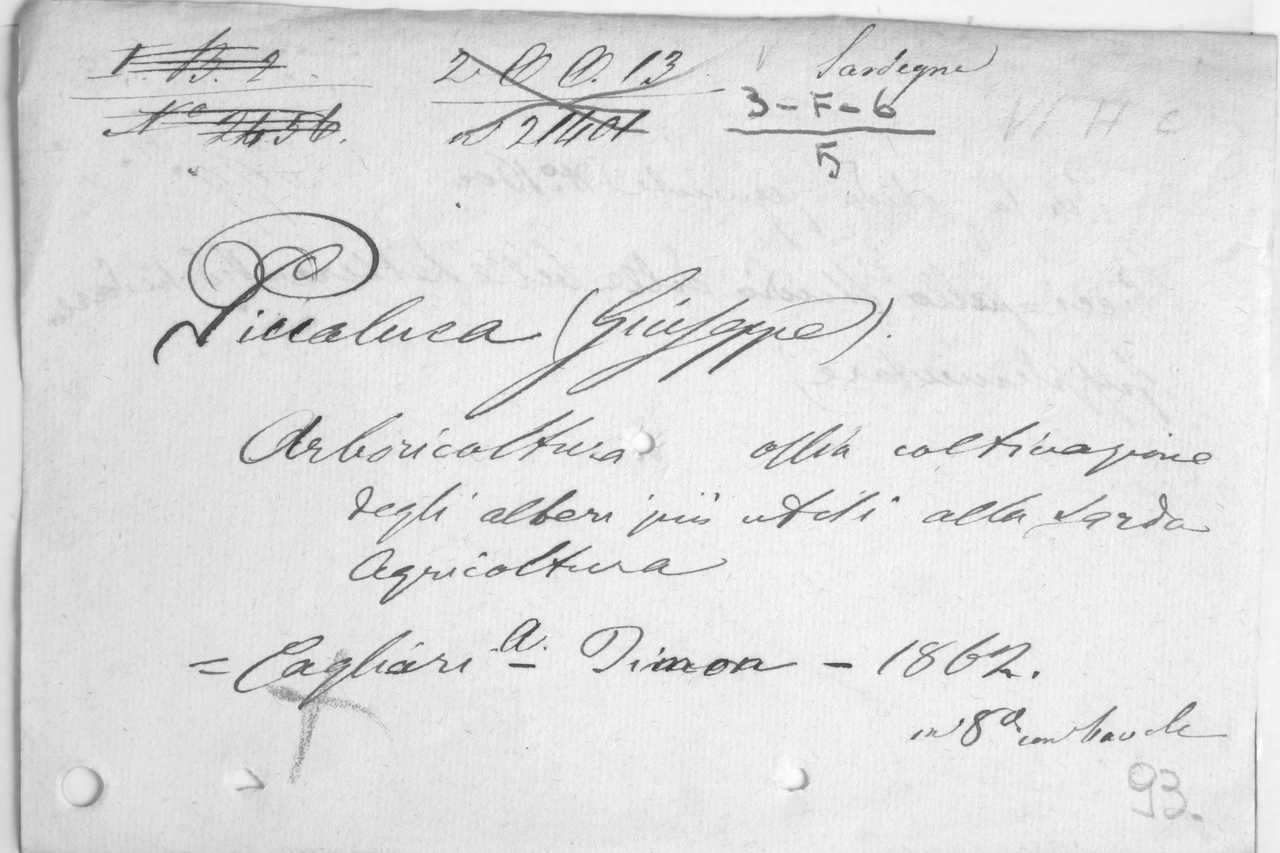 1. B. 2
N° 2456.
2. O. O. 13
21401
Sardegna
3-F-6
5
Piccaluca (Giuseppe).
Arboricoltura ossia coltivazione
degli alberi più utili alla sarda
Agricoltura
= Cagliari - A. Timon - 1862.
in 8° con tavole
93.